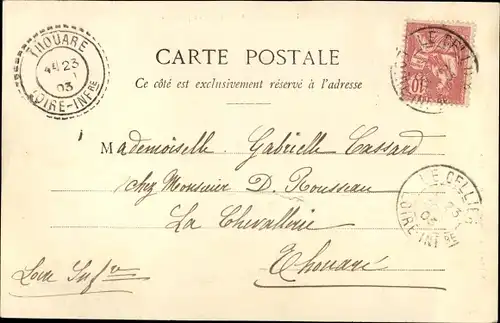 THOUARÉ
4H 23
1
03
LOIRE-INFRE
CARTE POSTALE
Ce côté est exclusivement réservé à l'adresse
LE CELLIER
10
Mademoiselle Gabrielle Cassard
chez Monsieur D. Rousseau
La Chevallerie
Thouaré
Loire Infre
LE CELLIER
23
1
03
LOIRE INFRE